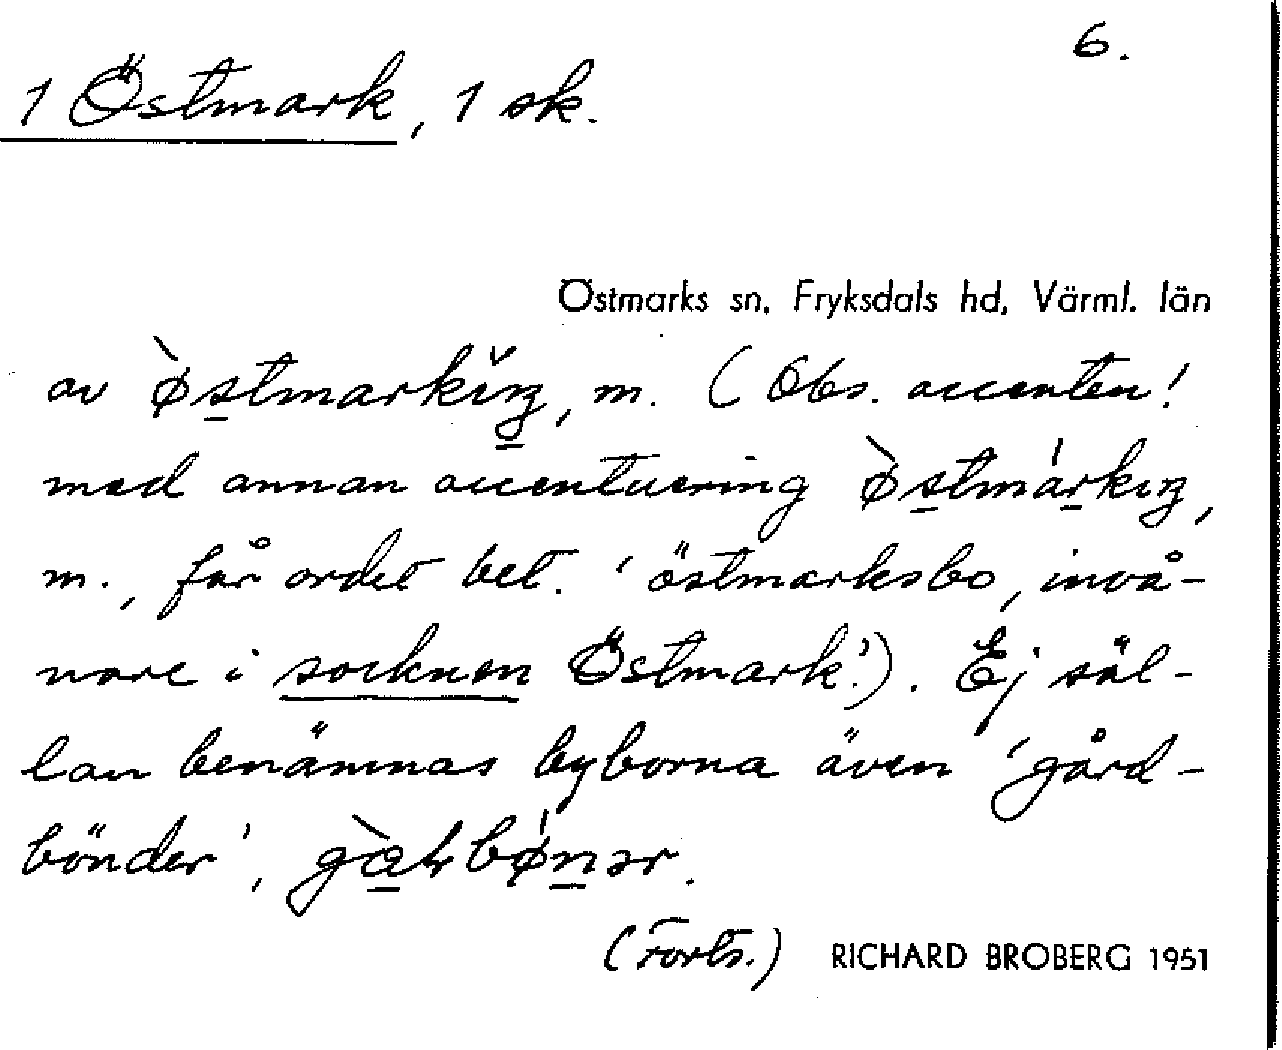 6.
1 Östmark, 1 sk.
Östmarks sn, Fryksdals hd, Värml. län
av østmarkiŋ, m. (Obs. accenten!
med annan accentuering østmarkiŋ,
m., får ordet bet. 'östmarksbo, invå-
nare i socknen Östmark'.). Ej säl-
lan benämnas byborna även 'gård-
bönder',
(Forts.) RICHARD BROBERG 1951